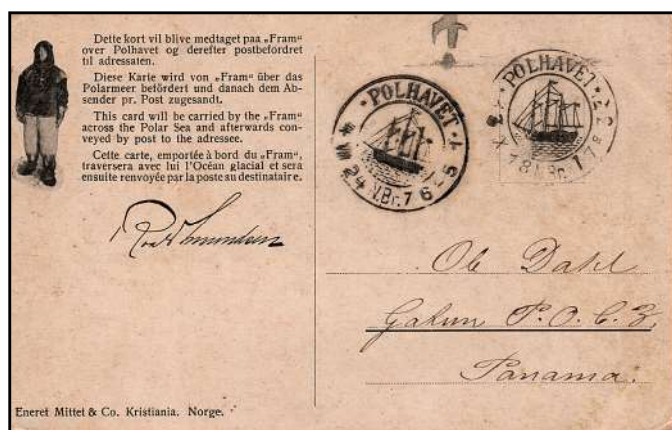 Dette kort vil blive medtaget paa „Fram“
over Polhavet og derefter postbefordret
til adressaten.
Diese Karte wird von „Fram“ über das
Polarmeer befördert und danach dem Ab-
sender pr. Post zugesandt.
This card will be carried by the „Fram“
across the Polar Sea and afterwards con-
veyed by post to the adressee.
Cette carte, emportée à bord du „Fram“,
traversera avec lui l'Océan glacial et sera
ensuite renvoyée par la poste au destinataire.
Roald Amundsen
POLHAVET
POLHAVET
Ole Dahl
Gatun P.O. C.Z.
Panama.
Eneret Mittet & Co. Kristiania. Norge.